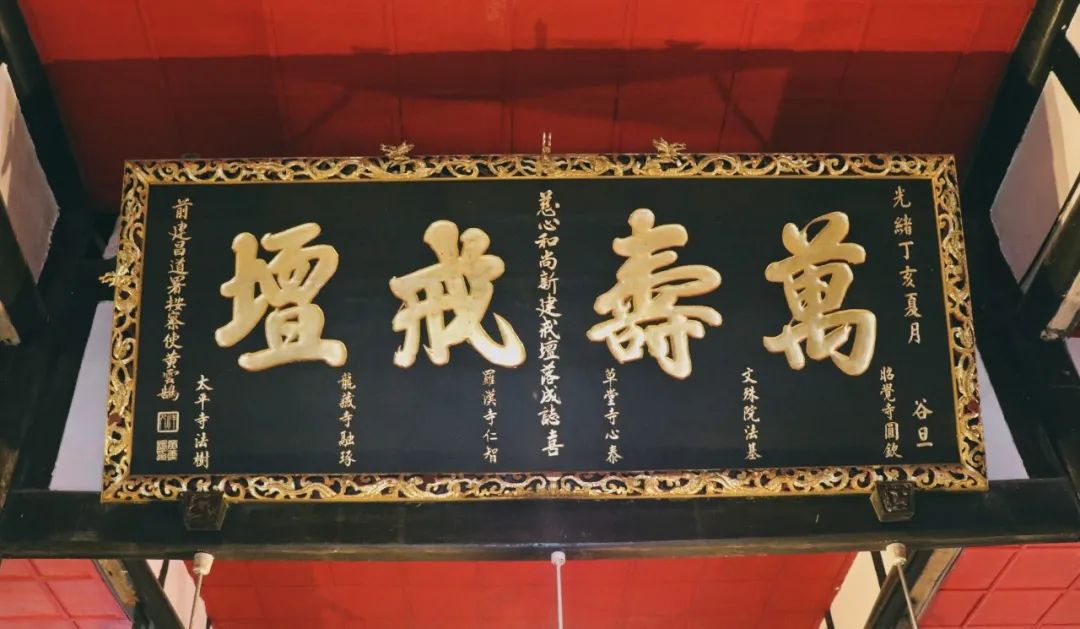 萬壽戒壇
光緒丁亥夏月
谷旦
慈心和尚新建戒壇落成誌喜
昭覺寺圓欽
文殊院法基
草堂寺心泰
羅漢寺仁智
龍藏寺融琢
太平寺法樹
前建昌道署按察使黃雲鵠